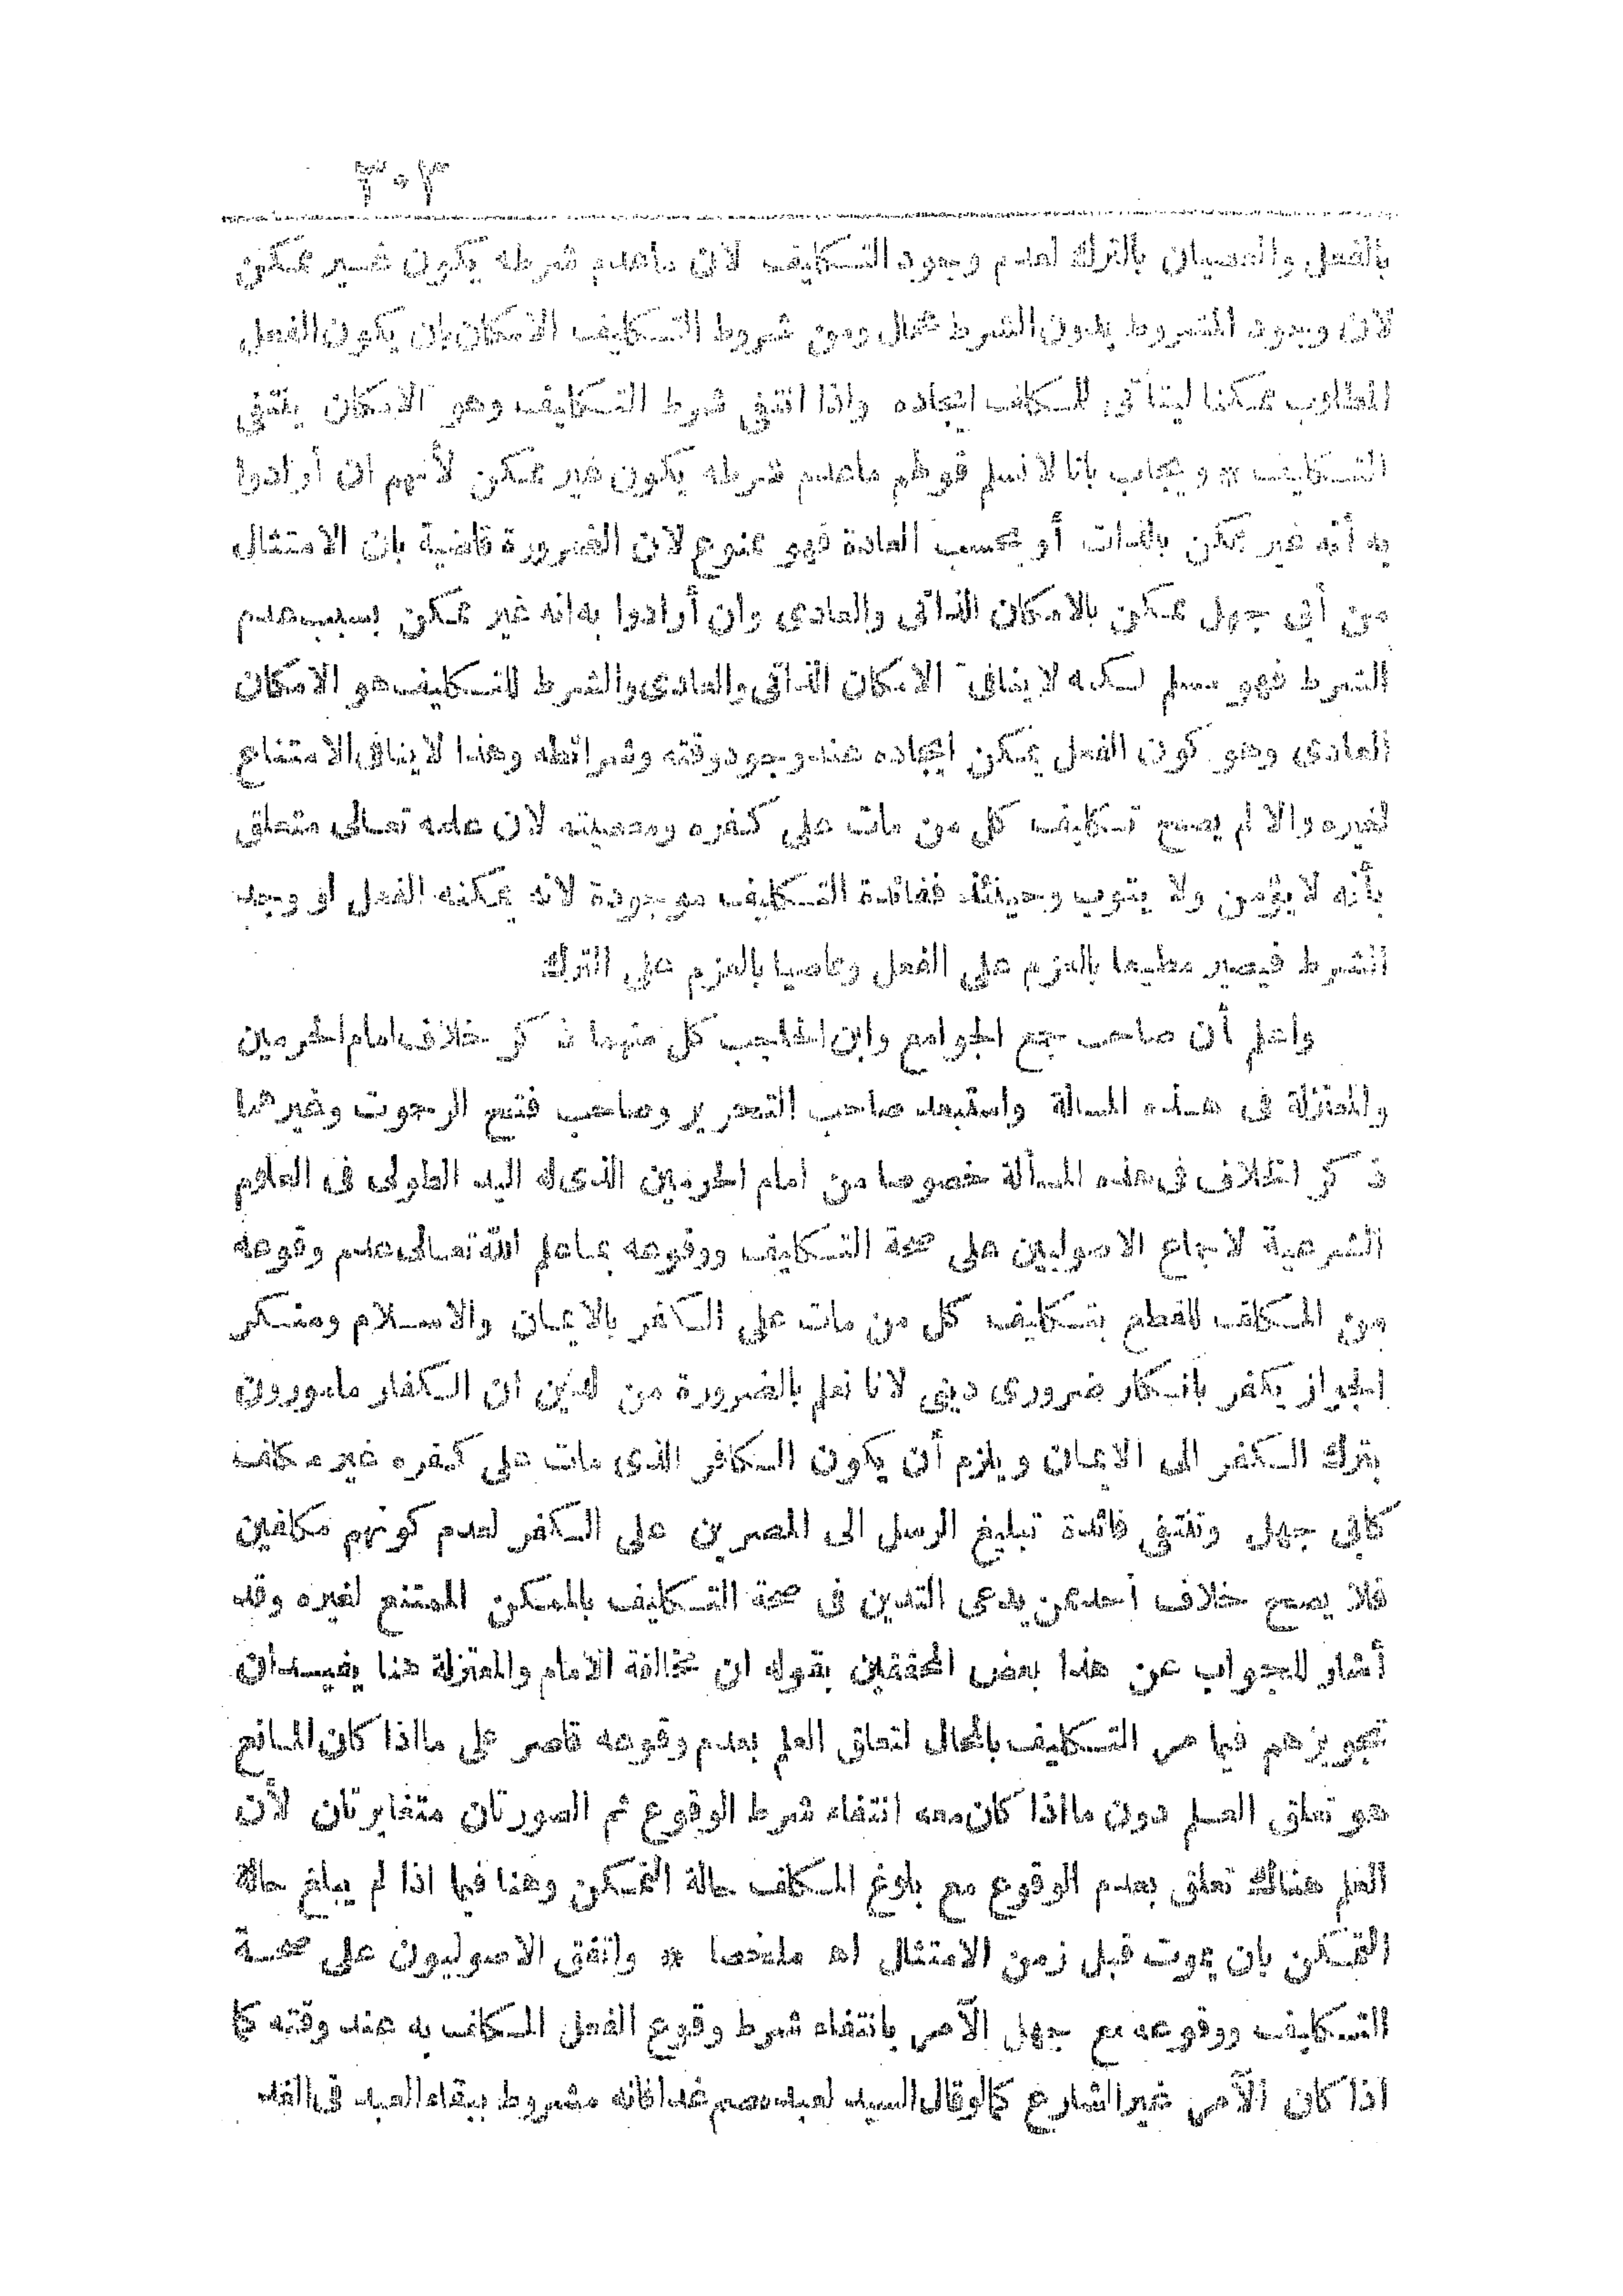 ٣٠٣
بالفعل والعصيان بالترك لعدم وجود التكليف لان ماعدم شرطه يكون غير ممكن
لان وجود المشروط بدون الشرط محال ومن شروط التكليف الامكان بان يكون الفعل
المطلوب ممكنا ليتأتى للمكلف ايجاده واذا انتفى شرط التكليف وهو الامكان ينتفى
التكليف * ويجاب بانا لا نسلم قولهم ماعدم شرطه يكون غير ممكن لأنهم ان أرادوا
به أنه غير ممكن بالذات أو بحسب العادة فهو ممنوع لان الضرورة قاضية بان الامتثال
من أبى جهل ممكن بالامكان الذاتى والعادى وان أرادوا به انه غير ممكن بسبب عدم
الشرط فهو مسلم لكنه لا ينافى الامكان الذاتى والعادى والشرط للتكليف هو الامكان
العادى وهو كون الفعل يمكن ايجاده عند وجود وقته وشرائطه وهذا لا ينافى الامتناع
لغيره والا لم يصح تكليف كل من مات على كفره ومعصيته لان علمه تعالى متعلق
بأنه لا يؤمن ولا يتوب وحينئذ ففائدة التكليف موجودة لانه يمكنه الفعل لو وجد
الشرط فيصير مطيعا بالعزم على الفعل وعاصيا بالعزم على الترك
واعلم أن صاحب جمع الجوامع وابن الحاجب كل منهما ذكر خلاف امام الحرمين
والمعتزلة فى هذه المسالة واستبعد صاحب التحرير وصاحب فتح الرحموت وغيرهما
ذكر الخلاف فى هذه المسألة خصوصا من امام الحرمين الذى له اليد الطولى فى العلوم
الشرعية لاجماع الاصوليين على صحة التكليف ووقوعه بما علم الله تعالى عدم وقوعه
من المكلف للقطع بتكليف كل من مات على الكفر بالايمان والاسلام ومنكر
الجواز يكفر بانكار ضرورى دينى لانا نعلم بالضرورة من الدين ان الكفار مامورون
بترك الكفر الى الايمان ويلزم أن يكون الكافر الذى مات على كفره غير مكلف
كابى جهل وتنتفى فائدة تبليغ الرسل الى المصرين على الكفر لعدم كونهم مكلفين
فلا يصح خلاف أحد ممن يدعى التدين فى صحة التكليف بالممكن الممتنع لغيره وقد
أشار للجواب عن هذا بعض المحققين بقوله ان مخالفة الامام والمعتزلة هنا يفيد ان
تجويزهم فيما مر التكليف بالمحال لتعلق العلم بعدم وقوعه قاصر على ما اذا كان المانع
هو تعلق العلم دون ما اذا كان معه انتفاء شرط الوقوع ثم الصورتان متغايرتان لأن
العلم هناك تعلق بعدم الوقوع مع بلوغ المكلف حالة التمكن وهنا فيما اذا لم يبلغ حالة
التمكن بان يموت قبل زمن الامتثال اه ملخصا * واتفق الاصوليون على صحة
التكليف ووقوعه مع جهل الآمر بانتفاء شرط وقوع الفعل المكلف به عند وقته كما
اذا كان الآمر غير الشارع كما لو قال السيد لعبده صم غدا فانه مشروط ببقاء العبد فى الغد